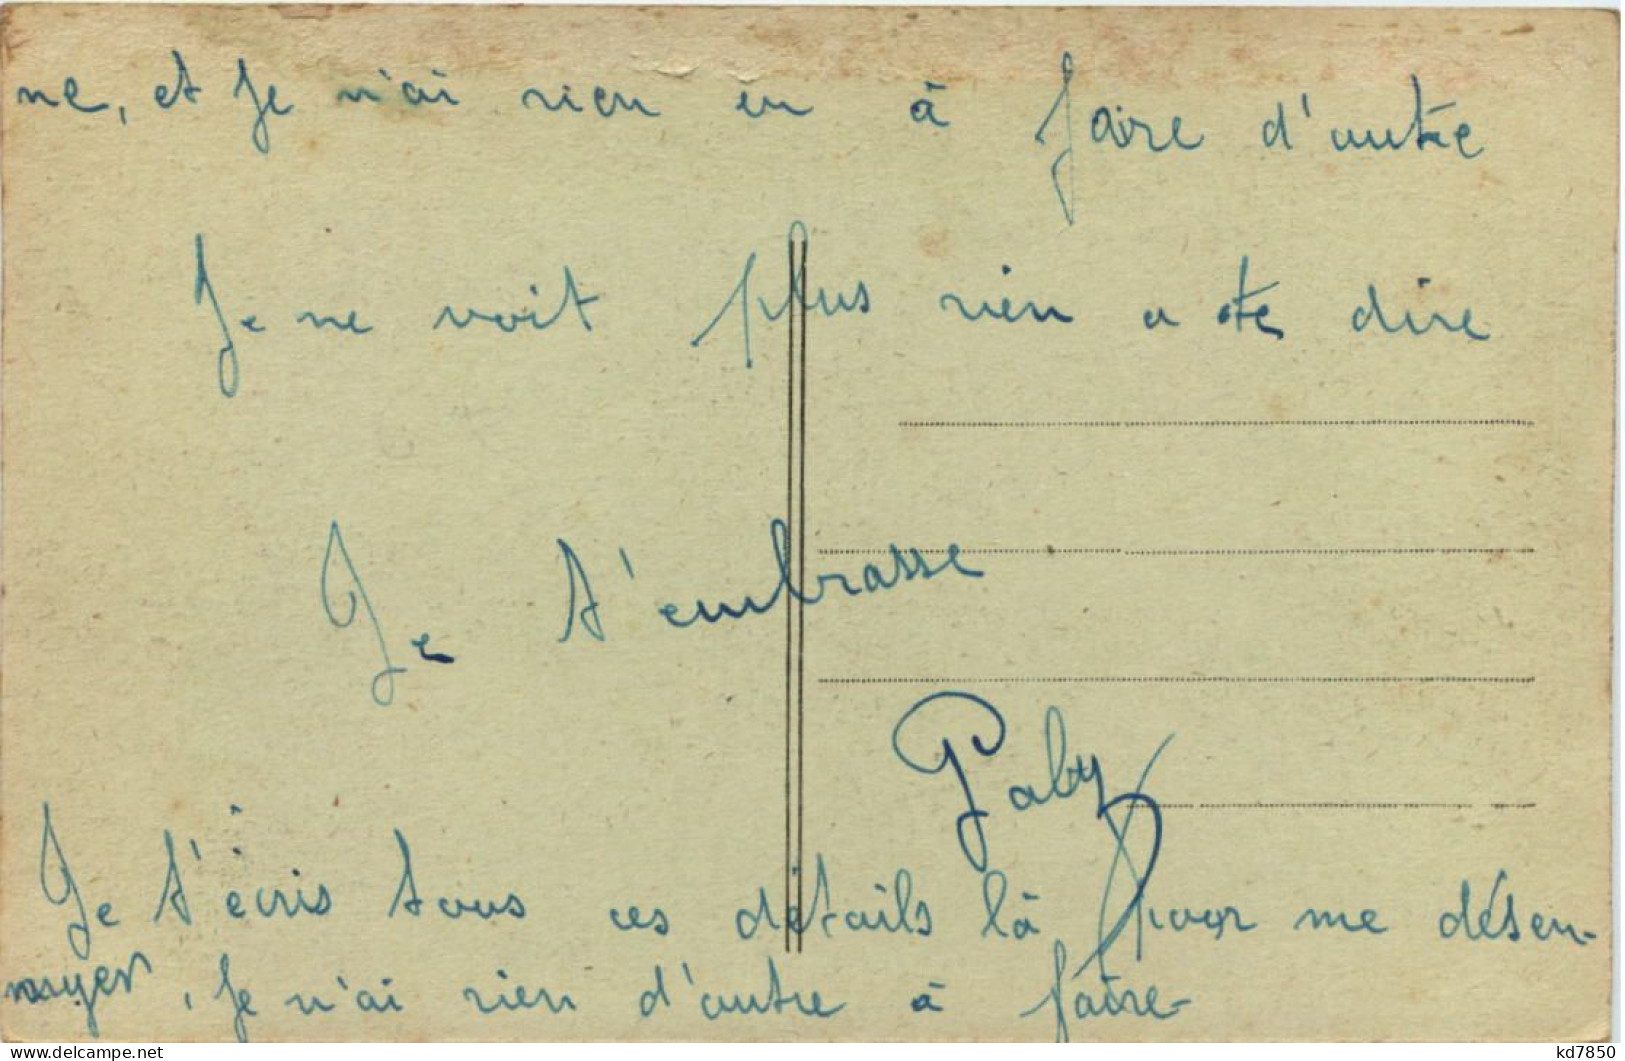 ne, et je n'ai rien eu à faire d'autre
Je ne voit plus rien a te dire
Je t'embrasse
Gaby
Je t'écris tous ces détails là pour me désen-
nuyer, je n'ai rien d'autre à faire-
kd7850